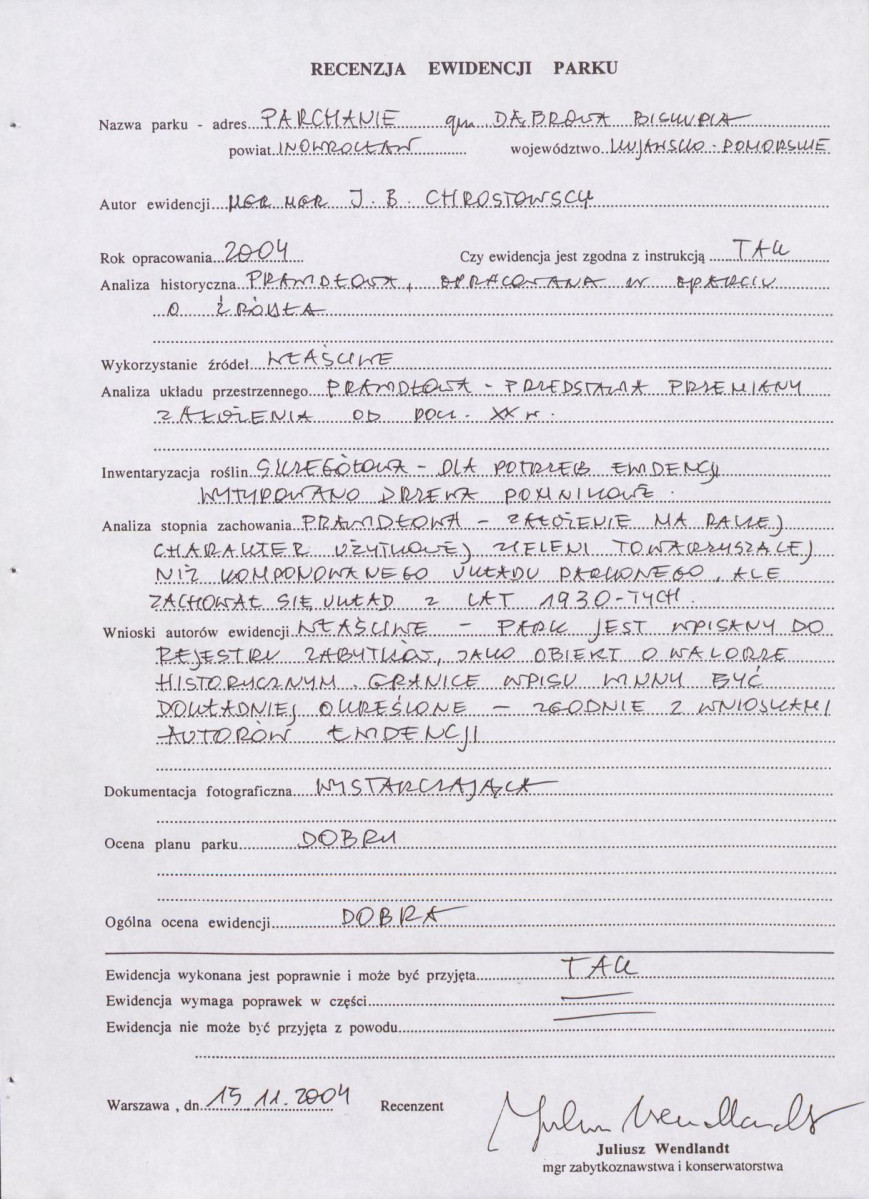 RECENZJA EWIDENCJI PARKU
Nazwa parku - adres PARCHANIE gm. DĄBROWA BISKUPIA
powiat INOWROCŁAW województwo KUJAWSKO-POMORSKIE
Autor ewidencji MGR MGR J. B. CHROSTOWSCY
Rok opracowania 2004 Czy ewidencja jest zgodna z instrukcją TAK
Analiza historyczna PRAWIDŁOWA, OPRACOWANA W OPARCIU
O ŹRÓDŁA
Wykorzystanie źródeł WŁAŚCIWE
Analiza układu przestrzennego PRAWIDŁOWA - PRZEDSTAWIA PRZEMIANY
ZAŁOŻENIA OD POCZ. XX w.
Inwentaryzacja roślin SZCZEGÓŁOWA - DLA POTRZEB EWIDENCJI
WYTYPOWANO DRZEWA POMNIKOWE.
Analiza stopnia zachowania PRAWIDŁOWA - ZAŁOŻENIE MA RACZEJ
CHARAKTER UŻYTKOWEJ ZIELENI TOWARZYSZĄCEJ
NIŻ KOMPONOWANEGO UKŁADU PARKOWEGO, ALE
ZACHOWAŁ SIĘ UKŁAD Z LAT 1930-TYCH.
Wnioski autorów ewidencji WŁAŚCIWE - PARK JEST WPISANY DO
REJESTRU ZABYTKÓW, JAKO OBIEKT O WALORZE
HISTORYCZNYM. GRANICE WPISU WINNY BYĆ
DOKŁADNIEJ OKREŚLONE - ZGODNIE Z WNIOSKAMI
AUTORÓW EWIDENCJI
Dokumentacja fotograficzna WYSTARCZAJĄCA
Ocena planu parku DOBRY
Ogólna ocena ewidencji DOBRA
Ewidencja wykonana jest poprawnie i może być przyjęta TAK
Ewidencja wymaga poprawek w części
Ewidencja nie może być przyjęta z powodu
Warszawa , dn. 15.11.2004 Recenzent Juliusz Wendlandt
Juliusz Wendlandt
mgr zabytkoznawstwa i konserwatorstwa